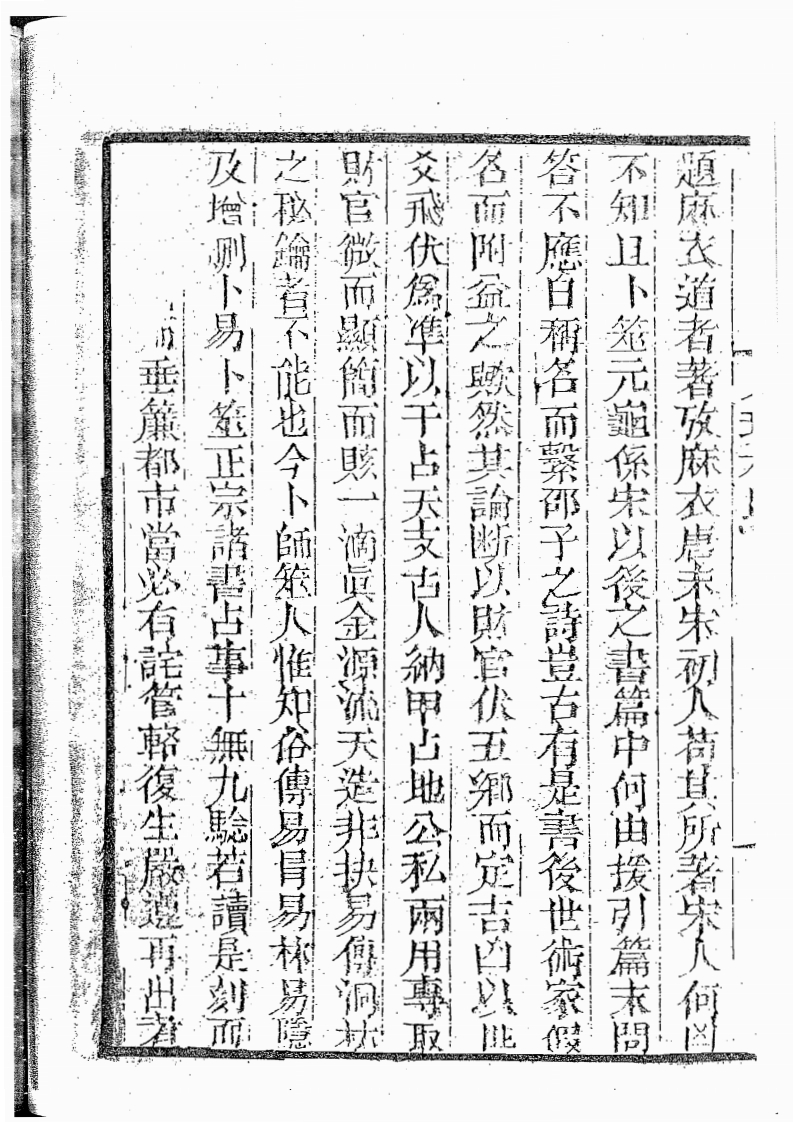 題麻衣道者著攷麻衣唐末宋初人苟其所著宋人何
不知且卜筮元龜係宋以後之書篇中何由援引篇末問
答不應自稱名而繫邵子之詩豈古有是書後世術家假
名而附益之歟然其論断以財官伏五鄉而定吉凶以世
爻飛伏爲準以干占天支占人納甲占地公私兩用專取
財官微而顯簡而賅一滴眞金源流天造非抉易傳洞林
之秘鑰者不能也今卜師筮人惟知俗傳易冐易林易隱
及增刪卜易卜筮正宗諸書占事十無九驗若讀是刻而
垂簾都市當必有詫管輅復生嚴遵再出者